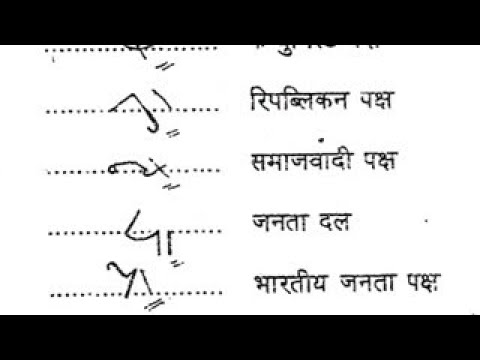 रिपब्लिकन पक्ष
समाजवादी पक्ष
जनता दल
भारतीय जनता पक्ष